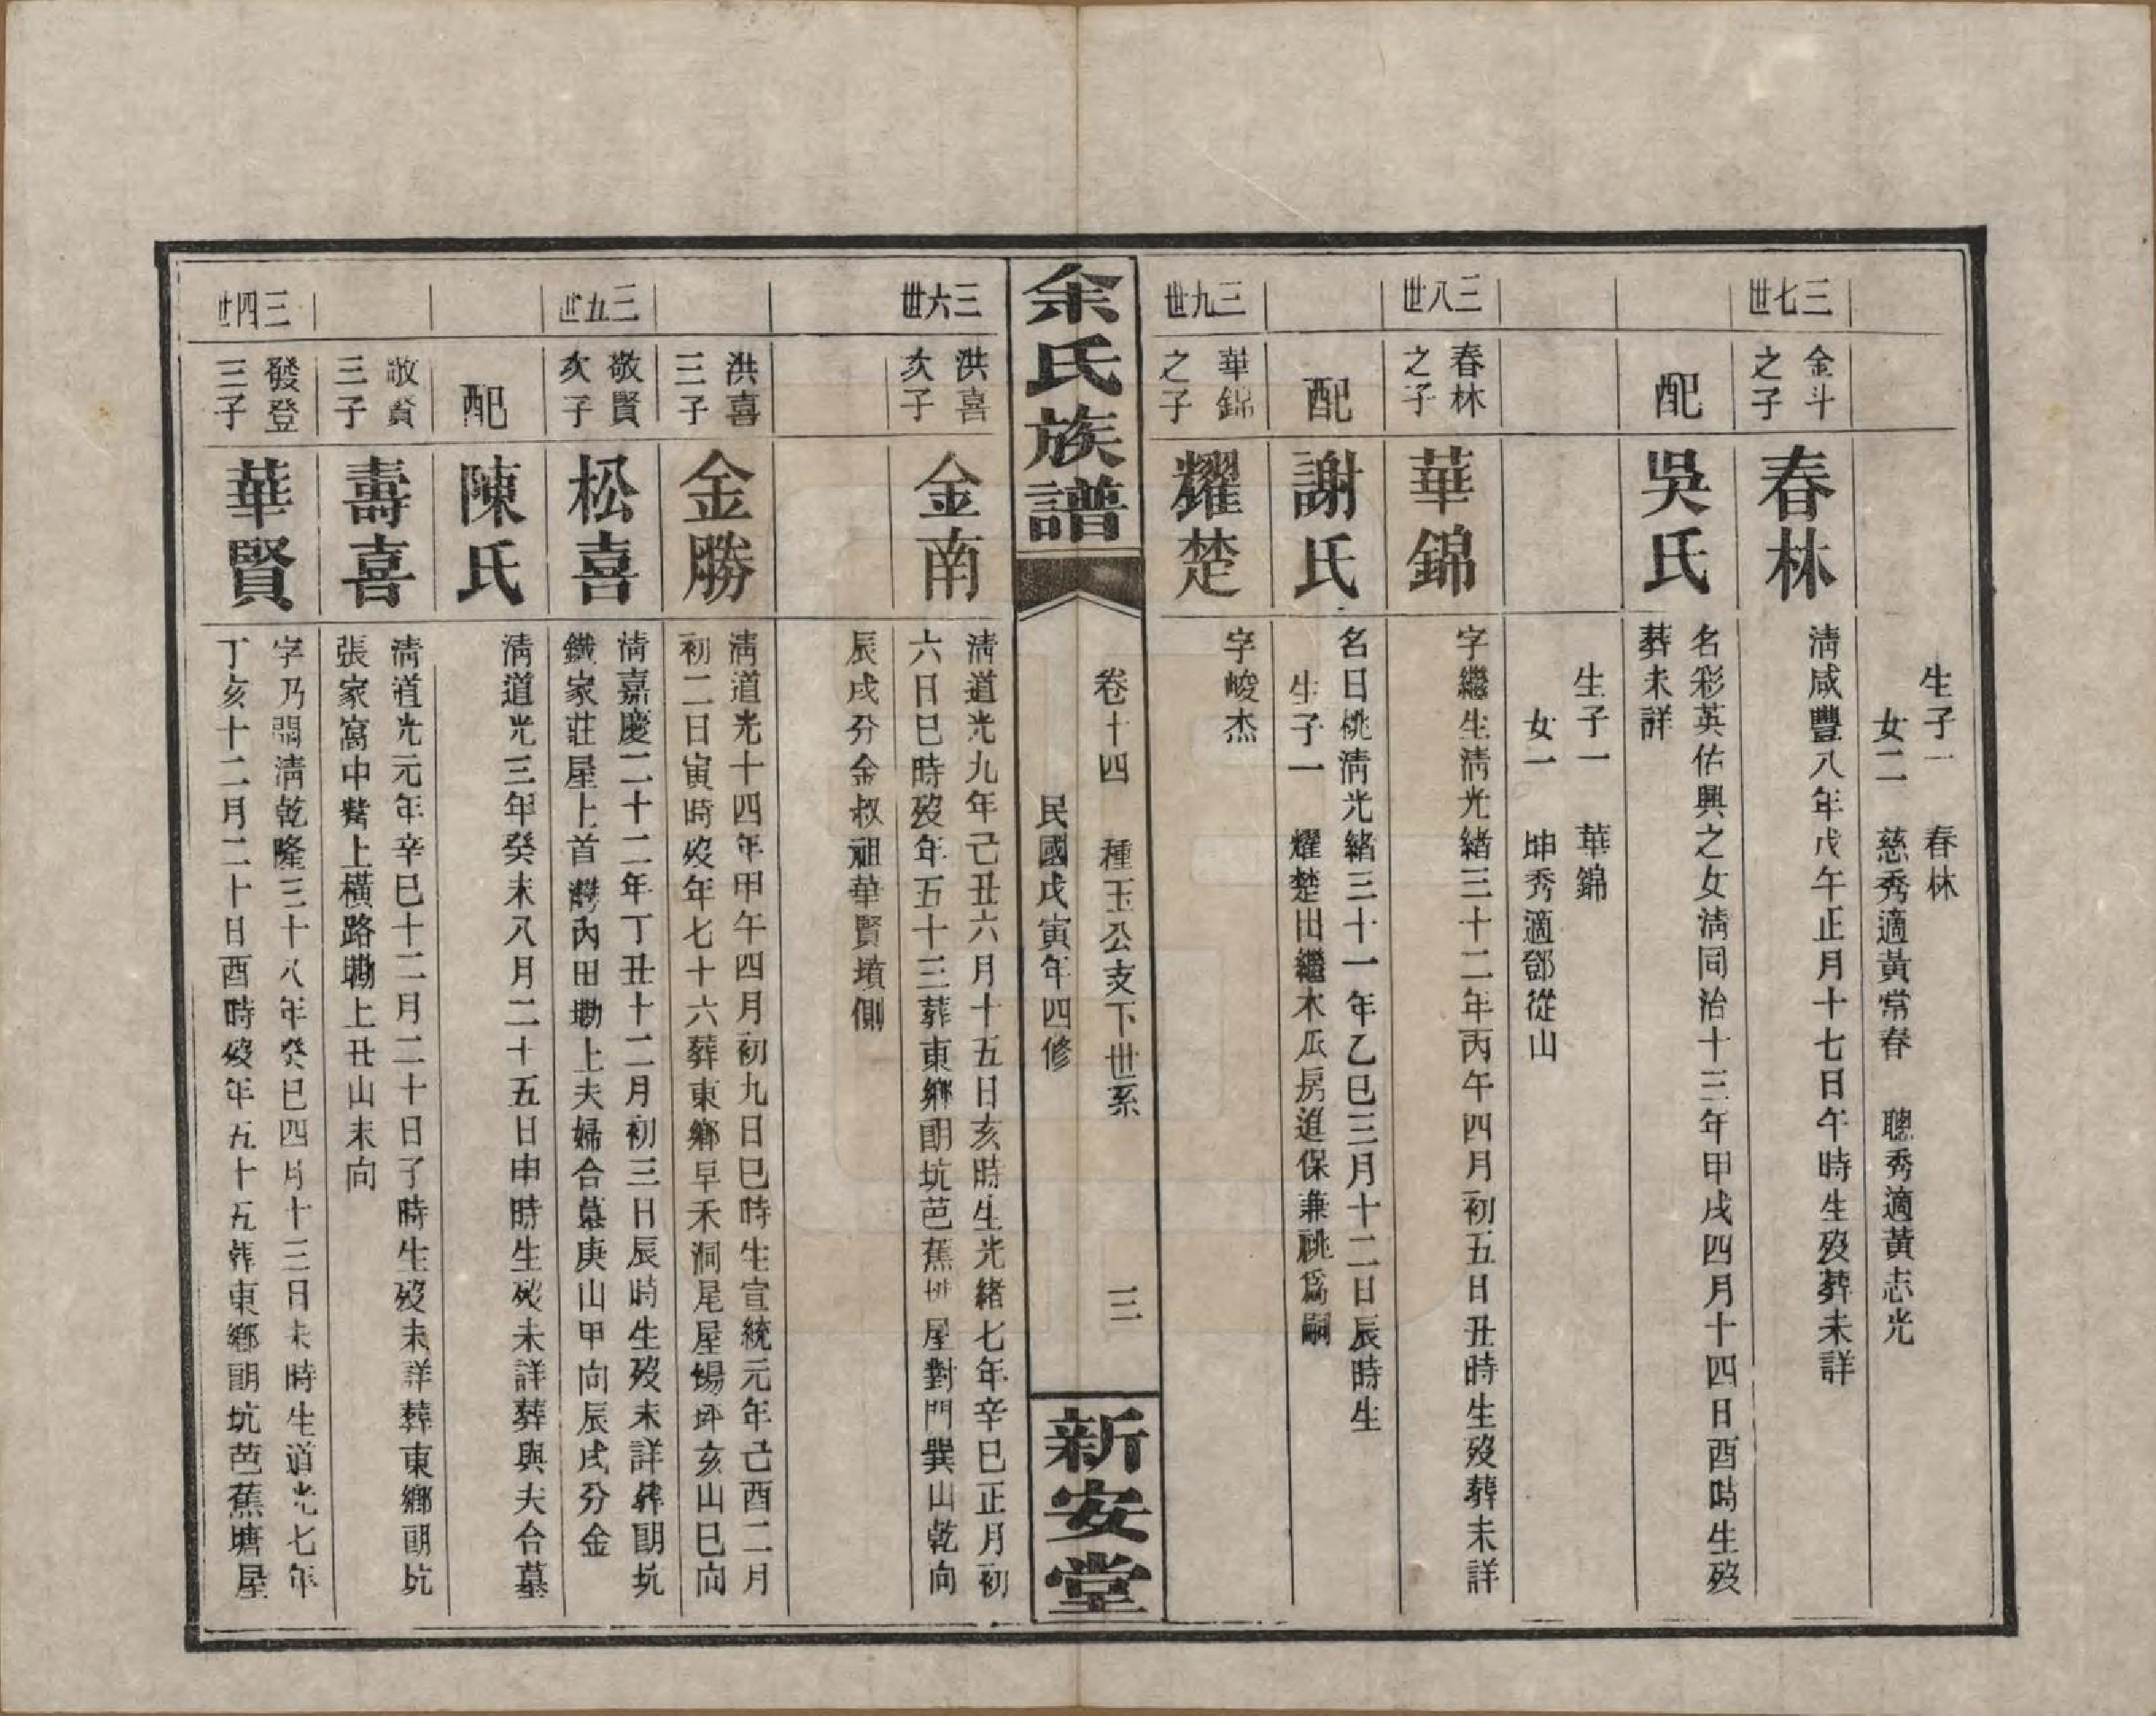 生子一　春林
女二　慈秀適黃常春　聰秀適黃志光
三七世
金斗
之子
春林
淸咸豐八年戊午正月十七日午時生歿葬未詳
配
吳氏
名彩英佑興之女淸同治十三年甲戌四月十四日酉時生歿
葬未詳
生子一　華錦
女一　坤秀適鄧從山
三八世
春林
之子
華錦
字繼生淸光緒三十二年丙午四月初五日丑時生歿葬未詳
配
謝氏
名日桃淸光緒三十一年乙巳三月十二日辰時生
生子一　耀楚出繼木瓜房進保兼祧爲嗣
三九世
華錦
之子
耀楚
字峻杰
余氏族譜
卷十四　種玉公支下世系　三
民國戊寅年四修
新安堂
三六世
洪喜
次子
金南
淸道光九年己丑六月十五日亥時生光緒七年辛巳正月初
六日巳時歿年五十三葬東鄉坑芭蕉屋對門巽山乾向
辰戌分金叔祖華賢墳側
洪喜
三子
金勝
淸道光十四年甲午四月初九日巳時生宣統元年己酉二月
初二日寅時歿年七十六葬東鄉早禾洞尾屋場坪亥山巳向
三五世
敬賢
次子
松喜
淸嘉慶二十二年丁丑十二月初三日辰時生歿未詳葬坑
鐵家莊屋上首灣內田墈上夫婦合墓庚山甲向辰戌分金
配
陳氏
淸道光三年癸未八月二十五日申時生歿未詳葬與夫合墓
敬賢
三子
壽喜
淸道光元年辛巳十二月二十日子時生歿未詳葬東鄉坑
張家窩中上橫路墈上丑山未向
三四世
發登
三子
華賢
字乃淸乾隆三十八年癸巳四月十三日未時生道光七年
丁亥十二月二十日酉時歿年五十五葬東鄉坑芭蕉塘屋